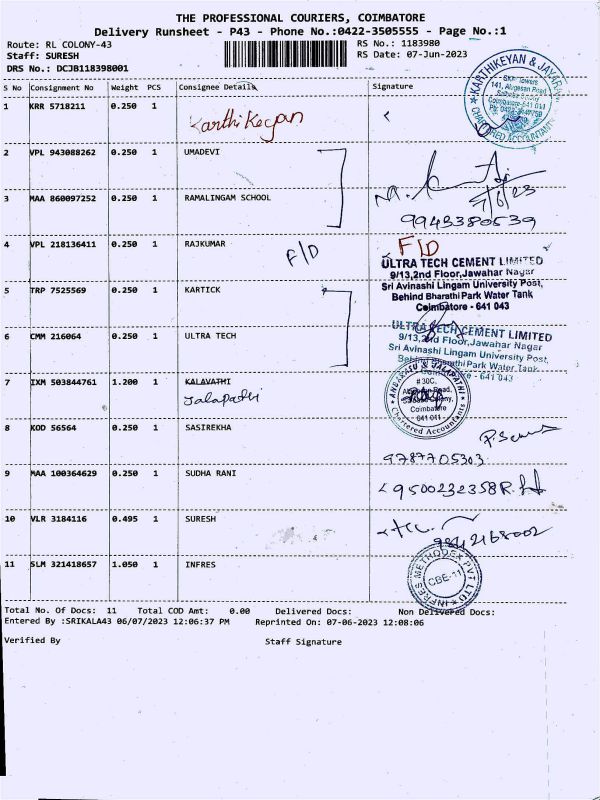 THE PROFESSIONAL COURIERS, COIMBATORE
Delivery Runsheet - P43 - Phone No.:0422-3505555 - Page No.:1
Route: RL COLONY-43
RS No.: 1183980
Staff: SURESH
RS Date: 07-Jun-2023
DRS No.: DCJB118398001
KARTHIKEYAN & JAYARAM
CHARTERED ACCOUNTANTS
S No Consignment No Weight PCS Consignee Details Signature
1 KRR 5718211 0.250 1 Karthikeyan
2 VPL 943088262 0.250 1 UMADEVI
3 MAA 860097252 0.250 1 RAMALINGAM SCHOOL
7/6/23
9943380539
4 VPL 218136411 0.250 1 RAJKUMAR F/D F/D
ULTRA TECH CEMENT LIMITED
9/13,2nd Floor,Jawahar Nagar
Sri Avinashi Lingam University Post,
Behind Bharathi Park Water Tank
Coimbatore - 641 043
5 TRP 7525569 0.250 1 KARTICK
6 CMM 216064 0.250 1 ULTRA TECH
ULTRA TECH CEMENT LIMITED
9/13, 2nd Floor, Jawahar Nagar
Sri Avinashi Lingam University Post,
Behind Bharathi Park Water Tank
Coimbatore - 641 043
7 IXM 503844761 1.200 1 KALAVATHI
Jalapathi
ANBARASU & JALAPATHI
# 30C,
Coimbatore
- 641 011 -
Chartered Accountants
8 KOD 56564 0.250 1 SASIREKHA
9787705303
9 MAA 100364629 0.250 1 SUDHA RANI
9500232358
10 VLR 3184116 0.495 1 SURESH
9842168002
11 SLM 321418657 1.050 1 INFRES
INFRES METHODEX PVT LTD
CBE-11
Total No. Of Docs: 11 Total COD Amt: 0.00 Delivered Docs: Non Delivered Docs:
Entered By :SRIKALA43 06/07/2023 12:06:37 PM Reprinted On: 07-06-2023 12:08:06
Verified By Staff Signature